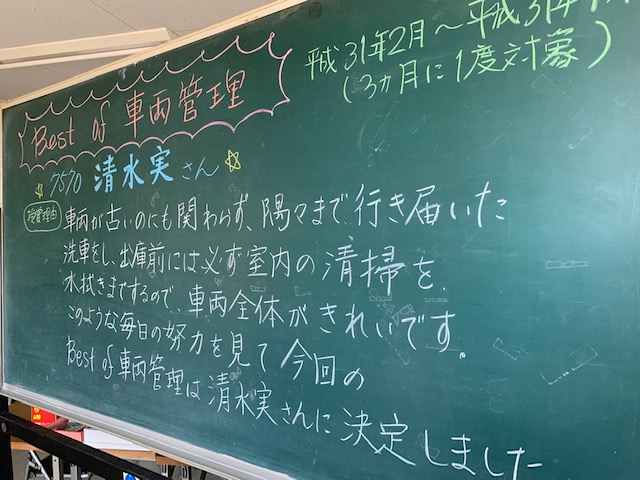 Best of 車両管理
平成31年2月〜平成31年
(3ヵ月に1度対象)
7570 清水実さん
受賞理由
車両が古いのにも関わらず、隅々まで行き届いた
洗車をし、出庫前には必ず室内の清掃を
水拭きまでするので、車両全体がきれいです。
このような毎日の努力を見て今回の
Best of 車両管理は清水実さんに決定しました